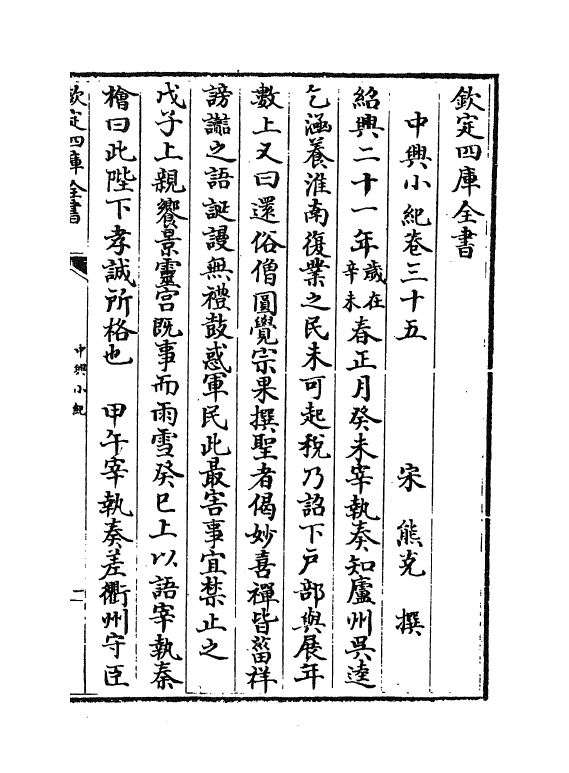 欽定四庫全書
中興小紀卷三十五
宋 熊克 撰
紹興二十一年歲在辛未春正月癸未宰執奏知廬州吳逵
乞涵養淮南復業之民未可起稅乃詔下戶部與展年
數上又曰還俗僧圓覺宗果撰聖者偈妙喜禪皆葘祥
謗讟之語誕謾無禮鼓惑軍民此最害事宜禁止之
戊子上親饗景靈宮既事而雨雪癸巳上以語宰執秦
檜曰此陛下孝誠所格也 甲午宰執奏差衢州守臣
欽定四庫全書
中興小紀